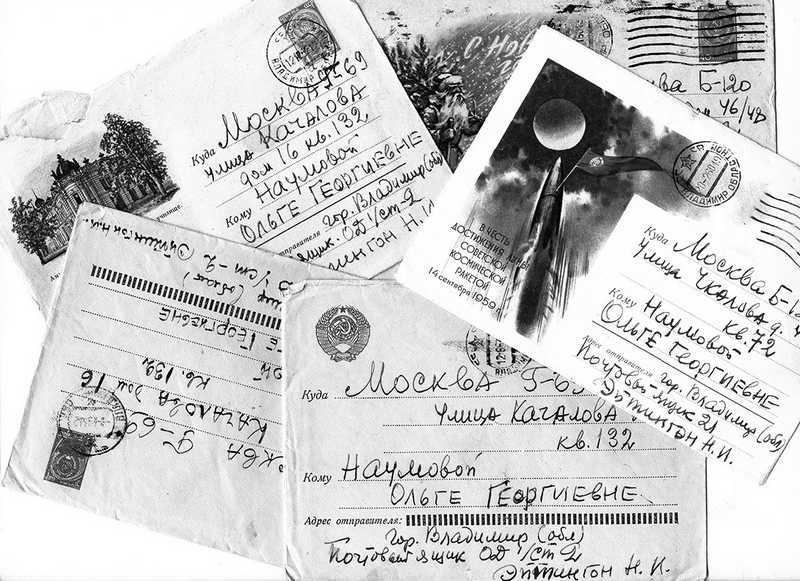 Москва Г-69
улица Качалова
дом 16 кв. 132
Наумовой
Ольге Георгиевне
гор. Владимир (обл)
ящик. ОД 1/ст-2
Эйтингон Н. И.
Куда
Кому
отправителя
С Нов
Москва Б-120
46/48
В ЧЕСТЬ
ДОСТИЖЕНИЯ ЛУНЫ
СОВЕТСКОЙ
КОСМИЧЕСКОЙ
РАКЕТОЙ
14 сентября 1959 г.
Куда Москва Б-120
Улица Чкалова д.
кв. 72
Кому Наумовой
Ольге Георгиевне
Адрес отправителя: гор. Владимир (обл)
Почтовый ящик 21
Эйтингон Н. И.
Георгиевне
кв. 132
Качалова дом 16
Г-69
Куда Москва Г-69
улица Качалова
кв. 132
Кому Наумовой
Ольге Георгиевне
Адрес отправителя:
гор. Владимир (обл)
Почтовый ящик ОД 1/ст 2
Эйтингон Н. И.